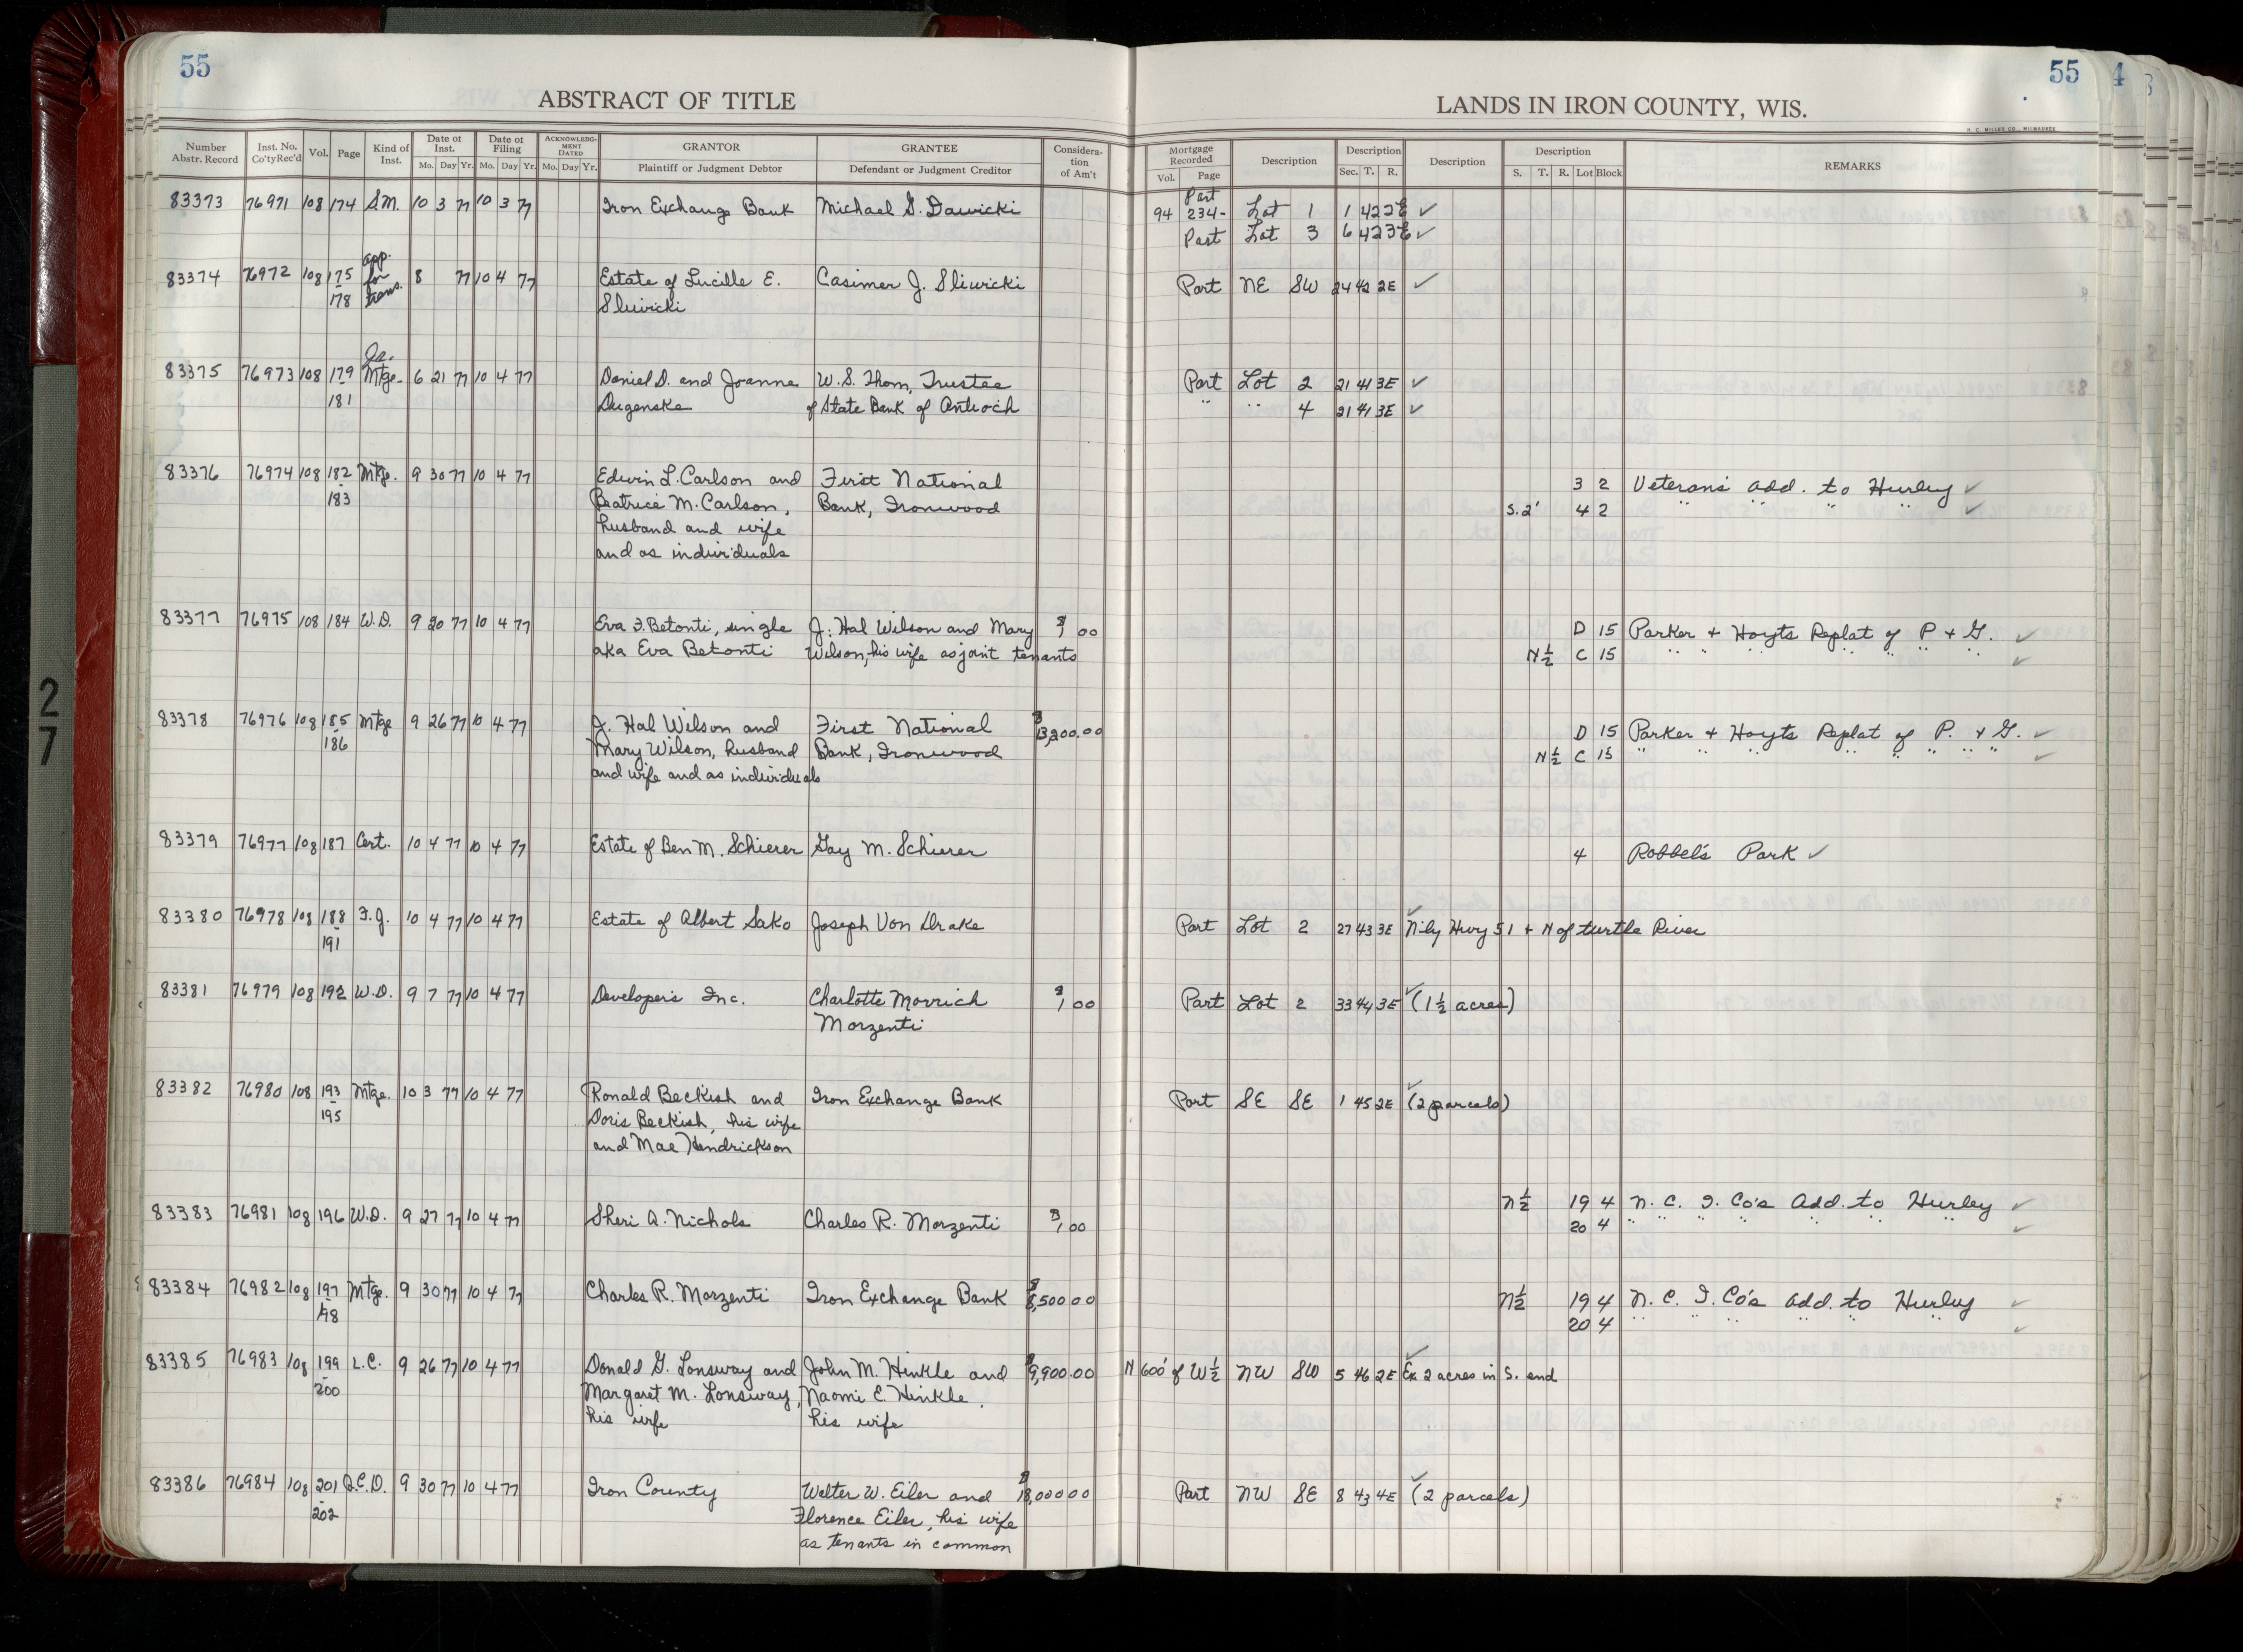 55
ABSTRACT OF TITLE
Number Abstr. Record Inst. No. Co'ty Rec'd Vol. Page Kind of Inst. Date of Inst. Mo. Day Yr. Date of Filing Mo. Day Yr. ACKNOWLEDGMENT DATED Mo. Day Yr. GRANTOR Plaintiff or Judgment Debtor GRANTEE Defendant or Judgment Creditor Consideration of Am't
55
4
LANDS IN IRON COUNTY, WIS.
H. C. MILLER CO., MILWAUKEE
Mortgage Recorded Vol. Page Description Description Sec. T. R. Description Description S. T. R. Lot Block REMARKS
83373 76971 108 174 S.M. 10 3 77 10 3 77 Iron Exchange Bank Michael G. Dawicki 94 Part 234- Lot 1 1 42 2E ✓
Part Lot 3 6 42 3E ✓
83374 76972 108 175 App. for trans. 8 77 10 4 77 Estate of Lucille E. Casimer J. Sliwicki Part NE SW 24 42 2E ✓
- 178 Sliwicki
83375 76973 108 179 Jr. Mtge. 6 21 77 10 4 77 Daniel D. and Joanne W.S. Thom, Trustee Part Lot 2 21 41 3E ✓
- 181 Dugenske of State Bank of Antioch " " 4 21 41 3E ✓
83376 76974 108 182 Mtge. 9 30 77 10 4 77 Edwin L. Carlson and First National 3 2 Veteran's Add. to Hurley ✓
- 183 Beatrice M. Carlson, Bank, Ironwood S. 2' 4 2 " " " " ✓
husband and wife
and as individuals
83377 76975 108 184 W.D. 9 20 77 10 4 77 Eva F. Betonti, single J. Hal Wilson and Mary $1 00 D 15 Parker + Hoyts Replat of P + G. ✓
aka Eva Betonti Wilson, his wife as joint tenants N½ C 15 " " " " " " " ✓
83378 76976 108 185 Mtge 9 26 77 10 4 77 J. Hal Wilson and First National $13,200.00 D 15 Parker + Hoyts Replat of P. + G. ✓
- 186 Mary Wilson, husband Bank, Ironwood N½ C 15 " " " " " " " ✓
and wife and as individuals
83379 76977 108 187 Cert. 10 4 77 10 4 77 Estate of Ben M. Schierer Gay M. Schierer 4 Robbel's Park ✓
83380 76978 108 188 F.J. 10 4 77 10 4 77 Estate of Albert Sako Joseph Von Drake Part Lot 2 27 43 3E ✓ N'ly Hwy 51 + N of turtle River
- 191
83381 76979 108 192 W.D. 9 7 77 10 4 77 Developers Inc. Charlotte Movrich $1 00 Part Lot 2 33 44 3E ✓ (1½ acres)
Morzenti
83382 76980 108 193 Mtge. 10 3 77 10 4 77 Ronald Beckish and Iron Exchange Bank Part SE SE 1 45 2E ✓ (2 parcels)
- 195 Doris Beckish, his wife
and Mae Hendrickson
83383 76981 108 196 W.D. 9 27 77 10 4 77 Sheri A. Nichols Charles R. Morzenti $1 00 N½ 19 4 N. C. I. Co's Add. to Hurley ✓
20 4 " " " " " " " ✓
83384 76982 108 197 Mtge. 9 30 77 10 4 77 Charles R. Morzenti Iron Exchange Bank $8,500 00 N½ 19 4 N. C. I. Co's Add. to Hurley ✓
- 198 20 4 " " " " " " ✓
83385 76983 108 199 L.C. 9 26 77 10 4 77 Donald G. Lonsway and John M. Hinkle and $9,900.00 N 600' of W½ NW SW 5 46 2E ✓ Ex. 2 acres in S. end
- 200 Margaret M. Lonsway, Naomi E. Hinkle,
his wife his wife
83386 76984 108 201 Q.C.D. 9 30 77 10 4 77 Iron County Walter W. Eiler and $18,000 00 Part NW SE 8 43 4E ✓ (2 parcels)
- 202 Florence Eiler, his wife
as tenants in common
27